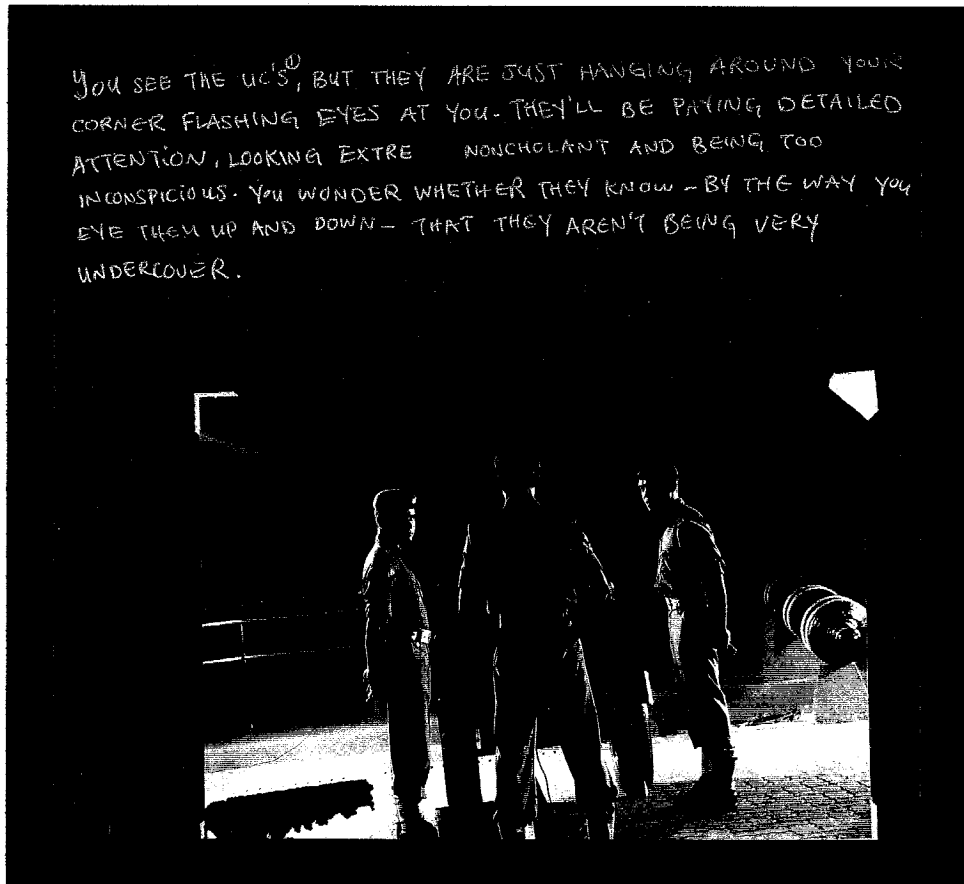 YOU SEE THE UC'S①, BUT THEY ARE JUST HANGING AROUND YOUR
CORNER FLASHING EYES AT YOU. THEY'LL BE PAYING DETAILED
ATTENTION, LOOKING EXTRE NONCHOLANT AND BEING TOO
INCONSPICIOUS. YOU WONDER WHETHER THEY KNOW – BY THE WAY YOU
EYE THEM UP AND DOWN – THAT THEY AREN'T BEING VERY
UNDERCOVER.